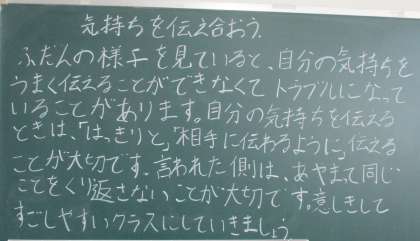 気持ちを伝え合おう。
ふだんの様子を見ていると、自分の気持ちを
うまく伝えることができなくてトラブルになって
いることがあります。自分の気持ちを伝える
ときは、「はっきりと」「相手に伝わるように」伝える
ことが大切です。言われた側は、あやまって同じ
ことをくり返さないことが大切です。意しきして
すごしやすいクラスにしていきましょう。